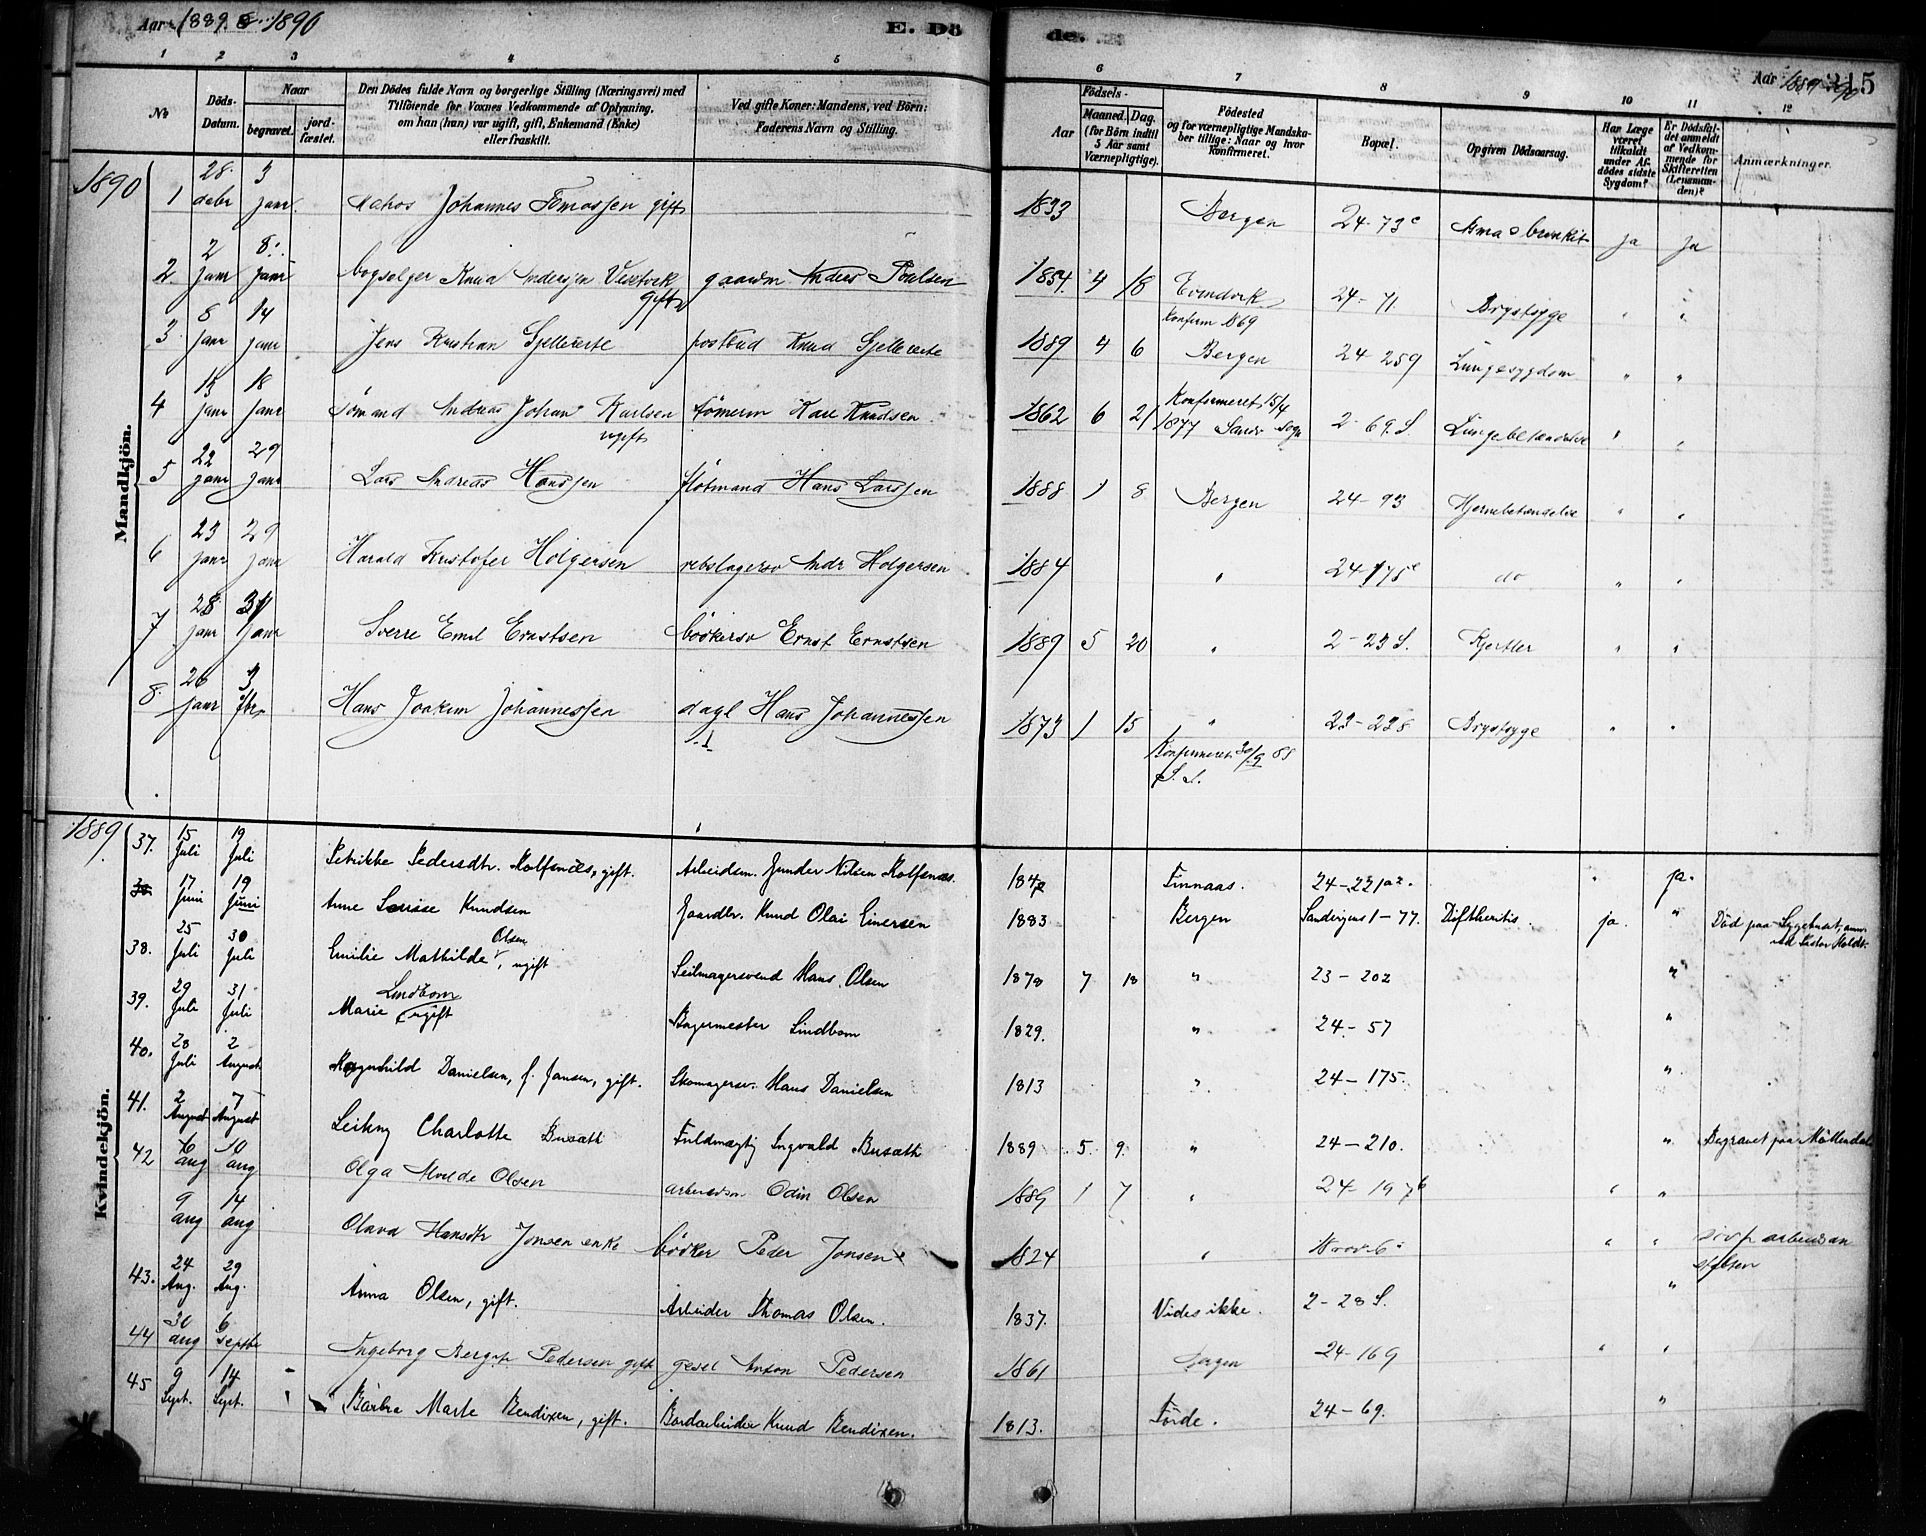 Aar 1889 & 1890
E. Dö
de.
Aar 1889-90
215
1 2 3 4 5 6 7 8 9 10 11 12
No
Döds-Datum.
Naar
begravet.
jord-fæstet.
Den Dödes fulde Navn og borgerlige Stilling (Næringsvei) med
Tilföiende for Voxnes Vedkommende af Oplysning,
om han (hun) var ugift, gift, Enkemand (Enke)
eller fraskilt.
Ved gifte Koner: Mandens, ved Börn:
Faderens Navn og Stilling.
Födsels-
Aar
Maaned. Dag.
(for Börn indtil
5 Aar samt
Værnepligtige).
Födested
og for værnepligtige Mandska-
ber tillige: Naar og hvor
Konfirmeret.
Bopæl.
Opgiven Dödsaarsag.
Har Læge
været
tilkaldt
under Af-
dödes sidste
Sygdom?
Er Dödsfal-
det anmeldt
af Vedkom-
mende for
Skifteretten
(Lensman-
den)?
Anmærkninger.
Mandkjön.
1890
1 28 debr 3 janr Johannes Tomassen gift 1833 Bergen 24-73c ja ja
2. 2 janr 8 janr bogselger Knud Andersen gift gaardm Anders Poulsen 1854 4 18 Konfirm 1869 24-71 Brystsyge " "
3 8 janr 14 janr Jens Kristian postbud Knud 1889 4 6 Bergen 24-259 Lungesygdom " "
4 15 janr 18 janr sömand Andreas Johan Karlsen ugift tömerm Karl Knudsen 1862 6 21 Konfirmeret 15/4 1877 Sands Sogn 2-69. S. Lungebetændelse " "
5 22 janr 29 janr Lars Andreas Hanssen flötmand Hans Larssen 1888 1 8 Bergen 24-93 Hjernebetændelse " "
6 23 janr 29 janr Harald Kristofer Holgersen rebslagersv Andr Holgersen 1884 " 24-175e do " "
7 28 janr 31 janr Sverre Emil Ernstsen bödkersv Ernst Ernstsen 1889 5 20 " 2-23 S. Kjertler " "
8. 26 janr 3 fbr Hans Joakim Johannessen dagl Hans Johannessen 1873 1 15 " Konfirmeret 30/9 88 23-238 Brystsyge " "
Kvindekjön.
1889
37. 15 Juli 19 Juli Petrikke Pedersdtr. Rolfsnæs, gift. Arbeidsm. Gunder Nilsen Rolfsnæs. Finnaas. 24-221a2. " ja.
17 Juni 19 Juni Anne Lovise Knudsen Gaardbr. Knud Olai Einersen 1883 Bergen Sandvigens 1-77. Diftheritis. ja. " Död paa Sygehuset, anm.
38. 25 Juli 30 Juli Emilie Mathilde Olsen, ugift Seilmagersvend Hans Olsen 1878 7 18 " 23-202 "
39. 29 Juli 31 Juli Marie Lindbom ugift Bagermester Lindbom 1829. " 24-57 "
40. 28 Juli 2 August Ragnhild Danielsen, f. Jansen, gift. Skomagersv. Hans Danielsen 1813 " 24-175. "
41. 2 August 7 August Leikny Charlotte Busæth Fuldmægtig Ingvald Busæth 1889 5 9. " 24-210. " Begravet paa Möllendal
42 6 aug 10 aug Olga Olsen Odin Olsen 1889 1 7 " 24-197b " "
9 aug 14 aug Olava Hansdtr Jonsen enke bödker Peder Jonsen 1824 " " "
43. 24 Aug. 29 Aug. Anna Olsen, gift. Arbeider Thomas Olsen. 1837. Vides ikke. 2-28 S. "
44 30 aug 6 Septbr Ingeborg Pedersen gift Anton Pedersen 1861 Bergen 24-169 " "
45 9 Sept. 14 Sept. Barbra Marte Bendixen, gift. Bordarbeider Knud Bendixen. 1813. Förde. 24-69. "